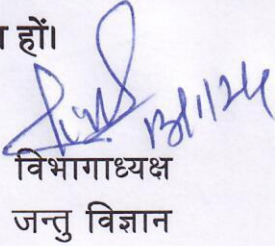 हों।
13/11/24
विभागाध्यक्ष
जन्तु विज्ञान